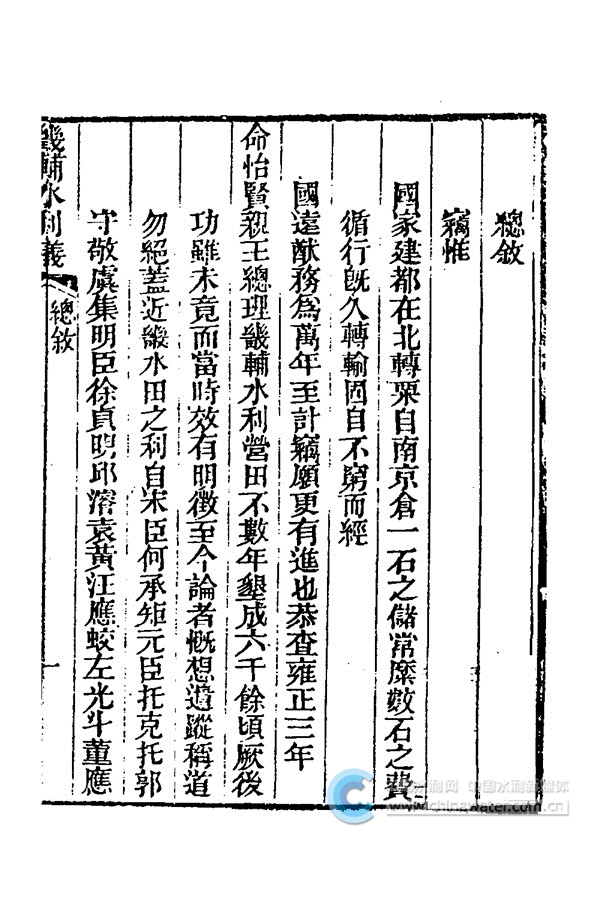 總敘
竊惟
國家建都在北轉粟自南京倉一石之儲常糜數石之費
循行旣久轉輸固自不窮而經
國遠猷務爲萬年至計竊願更有進也恭查雍正三年
命怡賢親王總理畿輔水利營田不數年墾成六千餘頃厥後
功雖未竟而當時效有明徵至今論者慨想遺蹤稱道
勿絕蓋近畿水田之利自宋臣何承矩元臣托克托郭
守敬虞集明臣徐貞明邱濬袁黃汪應蛟左光斗董應
畿輔水利議
總敘
一
中国水利新媒体
www.chinawater.com.cn